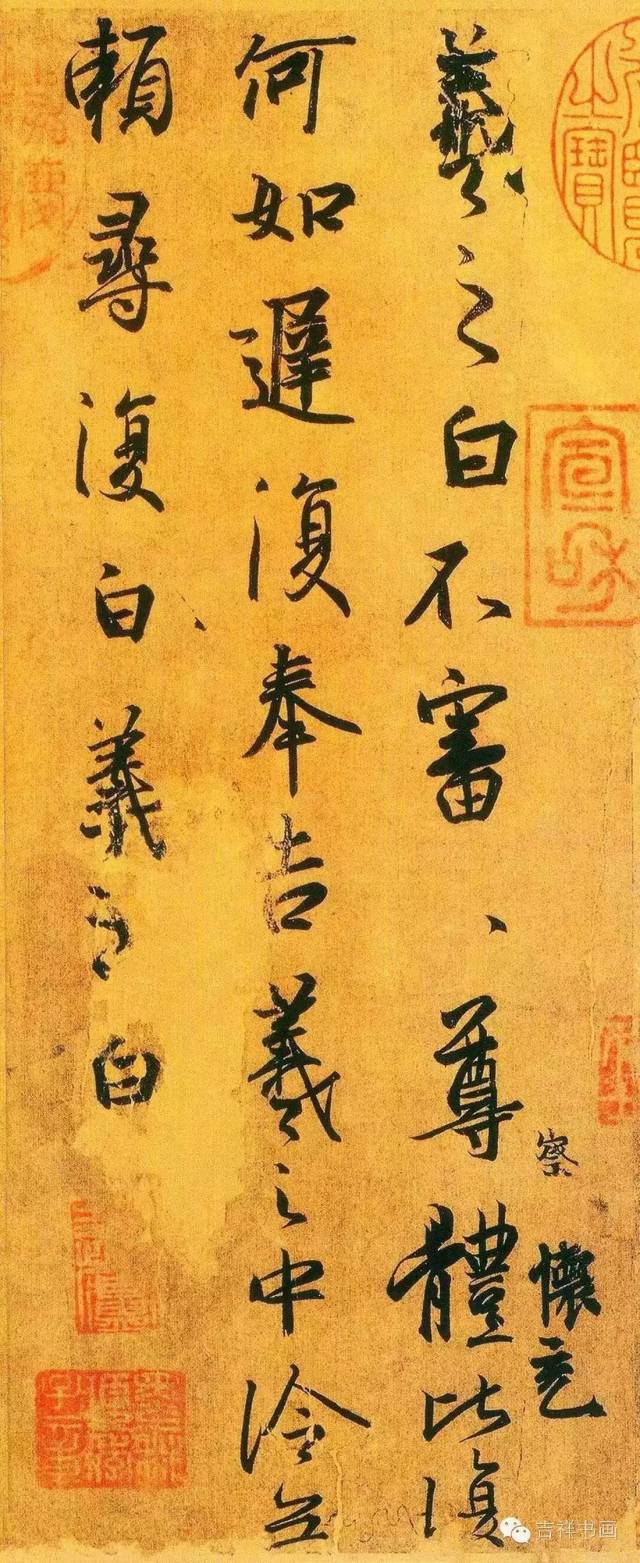 羲之白不審、尊體比復
察
懷充
何如遲復奉告羲之中冷無
賴尋復白羲之白
宣和
吉祥书画